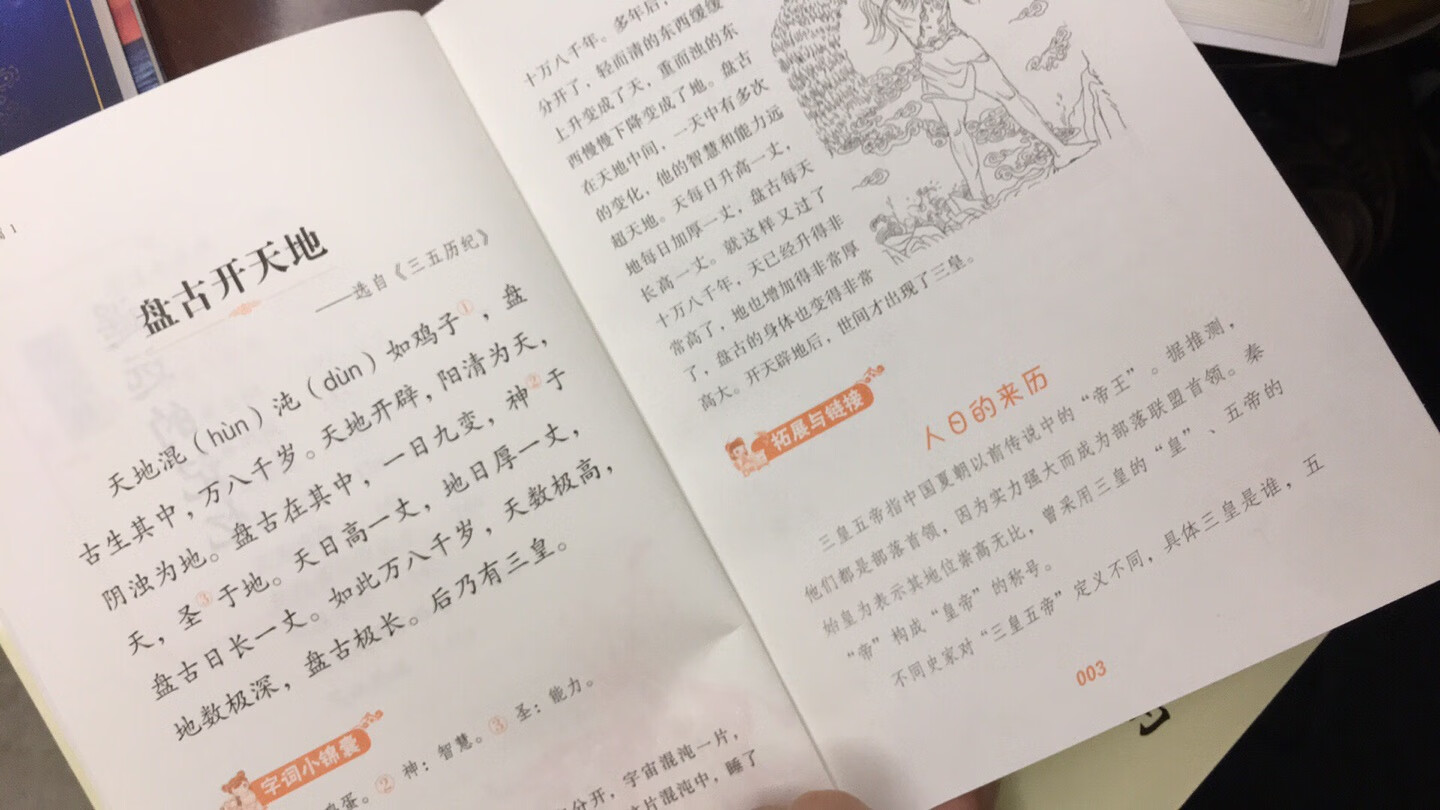 盘古开天地
——选自《三五历纪》
天地混(hùn)沌(dùn)如鸡子①,盘
古生其中,万八千岁。天地开辟,阳清为天,
阴浊为地。盘古在其中,一日九变,神②于
天,圣③于地。天日高一丈,地日厚一丈,
盘古日长一丈。如此万八千岁,天数极高,
地数极深,盘古极长。后乃有三皇。
字词小锦囊
鸡蛋。②神:智慧。③圣:能力。
分开,宇宙混沌一片,
片混沌中,睡了
十万八千年。多年后,
分开了,轻而清的东西缓缓
上升变成了天,重而浊的东
西慢慢下降变成了地。盘古
在天地中间,一天中有多次
的变化,他的智慧和能力远
超天地。天每日升高一丈,
地每日加厚一丈,盘古每天
长高一丈。就这样又过了
十万八千年,天已经升得非
常高了,地也增加得非常厚
了,盘古的身体也变得非常
高大。开天辟地后,世间才出现了三皇。
拓展与链接
人日的来历
三皇五帝指中国夏朝以前传说中的“帝王”。据推测,
他们都是部落首领,因为实力强大而成为部落联盟首领。秦
始皇为表示其地位崇高无比,曾采用三皇的“皇”、五帝的
“帝”构成“皇帝”的称号。
不同史家对“三皇五帝”定义不同,具体三皇是谁,五
003